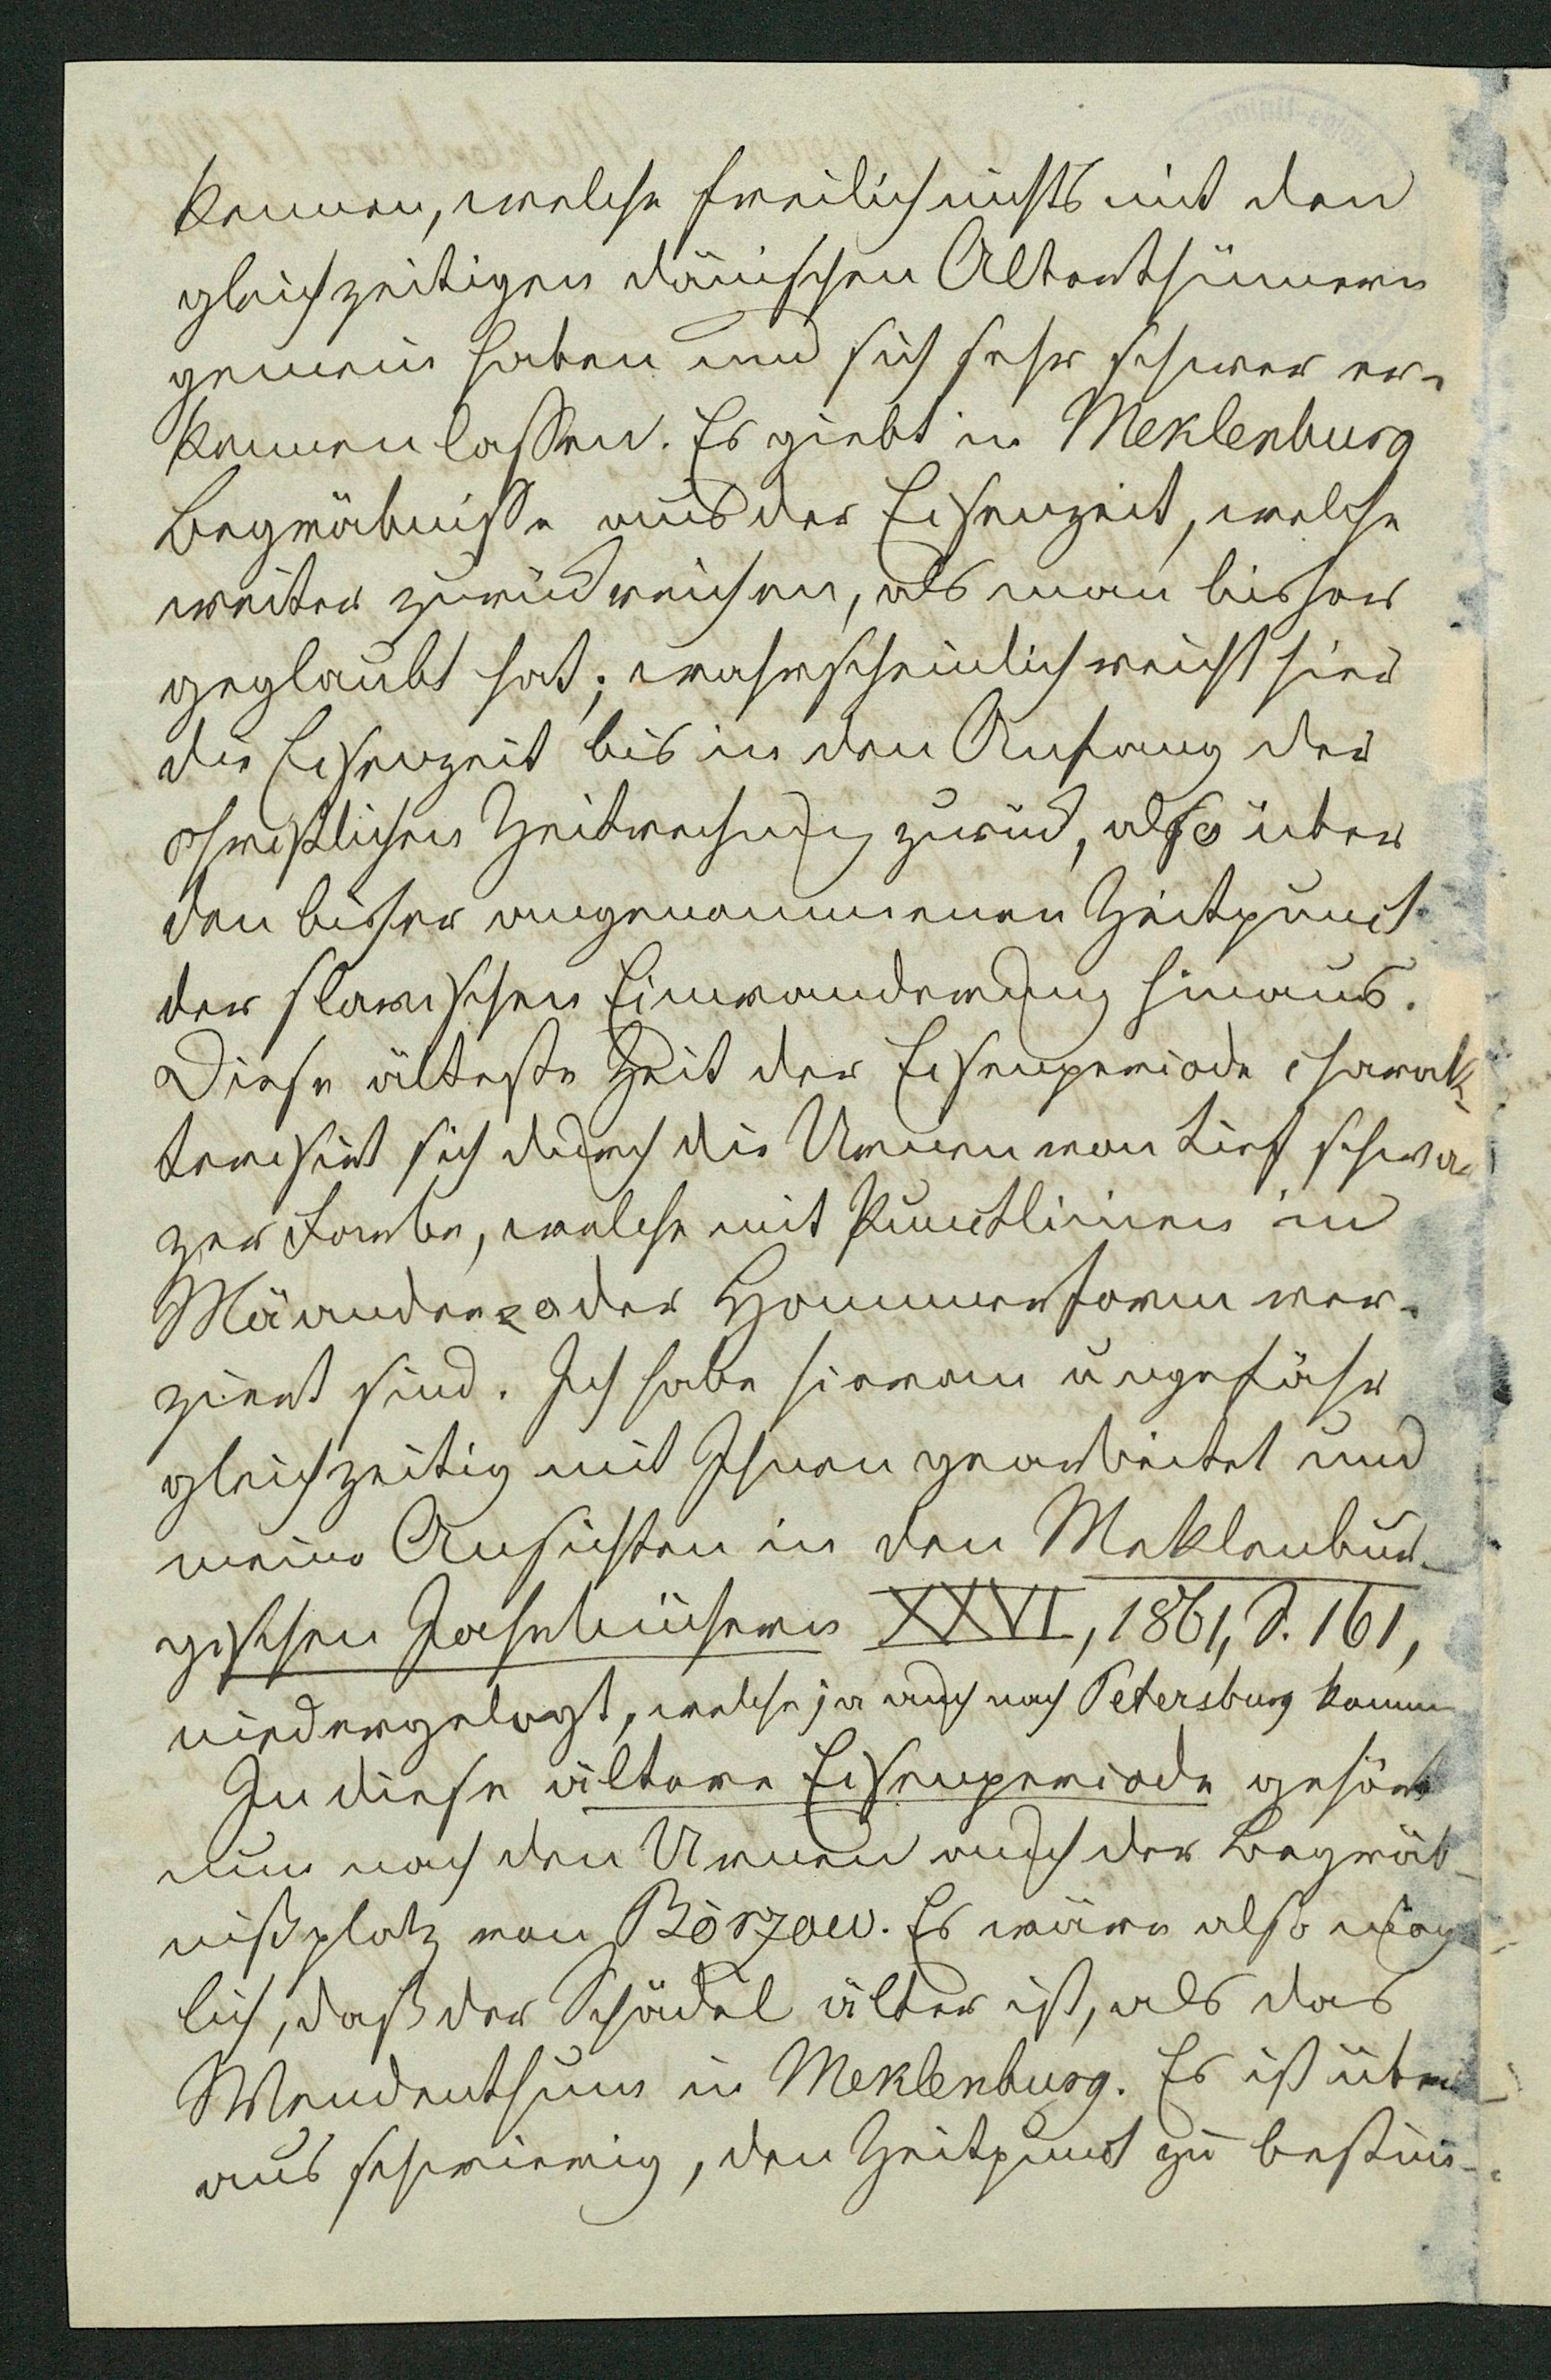 kennen, welche freilich nichts mit den
gleichzeitigen dänischen Alterthümern
gemein haben und sich sehr schwer er-
kennen lassen. Es giebt in Meklenburg
Begräbnisse aus der Eisenzeit, welche
weiter zurückreichen, als man bisher
geglaubt hat; wahrscheinlich reicht hier
die Eisenzeit bis in den Anfang der
christlichen Zeitrechnung zurück, also über
den bisher angenommenen Zeitpunct
der slavischen Einwanderung hinaus.
Diese älteste Zeit der Eisenperiode charak-
terisirt sich durch die Urnen von tief schwar-
zer Farbe, welche mit Punctlinien in
Mäander- oder Hammerform ver-
ziert sind. Ich habe hieran ungefähr
gleichzeitig mit Ihnen gearbeitet und
meine Ansichten in den Meklenbur-
gischen Jahrbüchern XXVI, 1861, S. 161,
niedergelegt, welche ja auch nach Petersburg komm
In diese ältere Eisenperiode gehört
nun nach den Urnen auch der Begräb-
nißplatz von Börzow. Es wäre also mög
lich, daß der Schädel älter ist, als das
Wendenthum in Meklenburg. Es ist über-
aus schwierig, den Zeitpunct zu bestim-